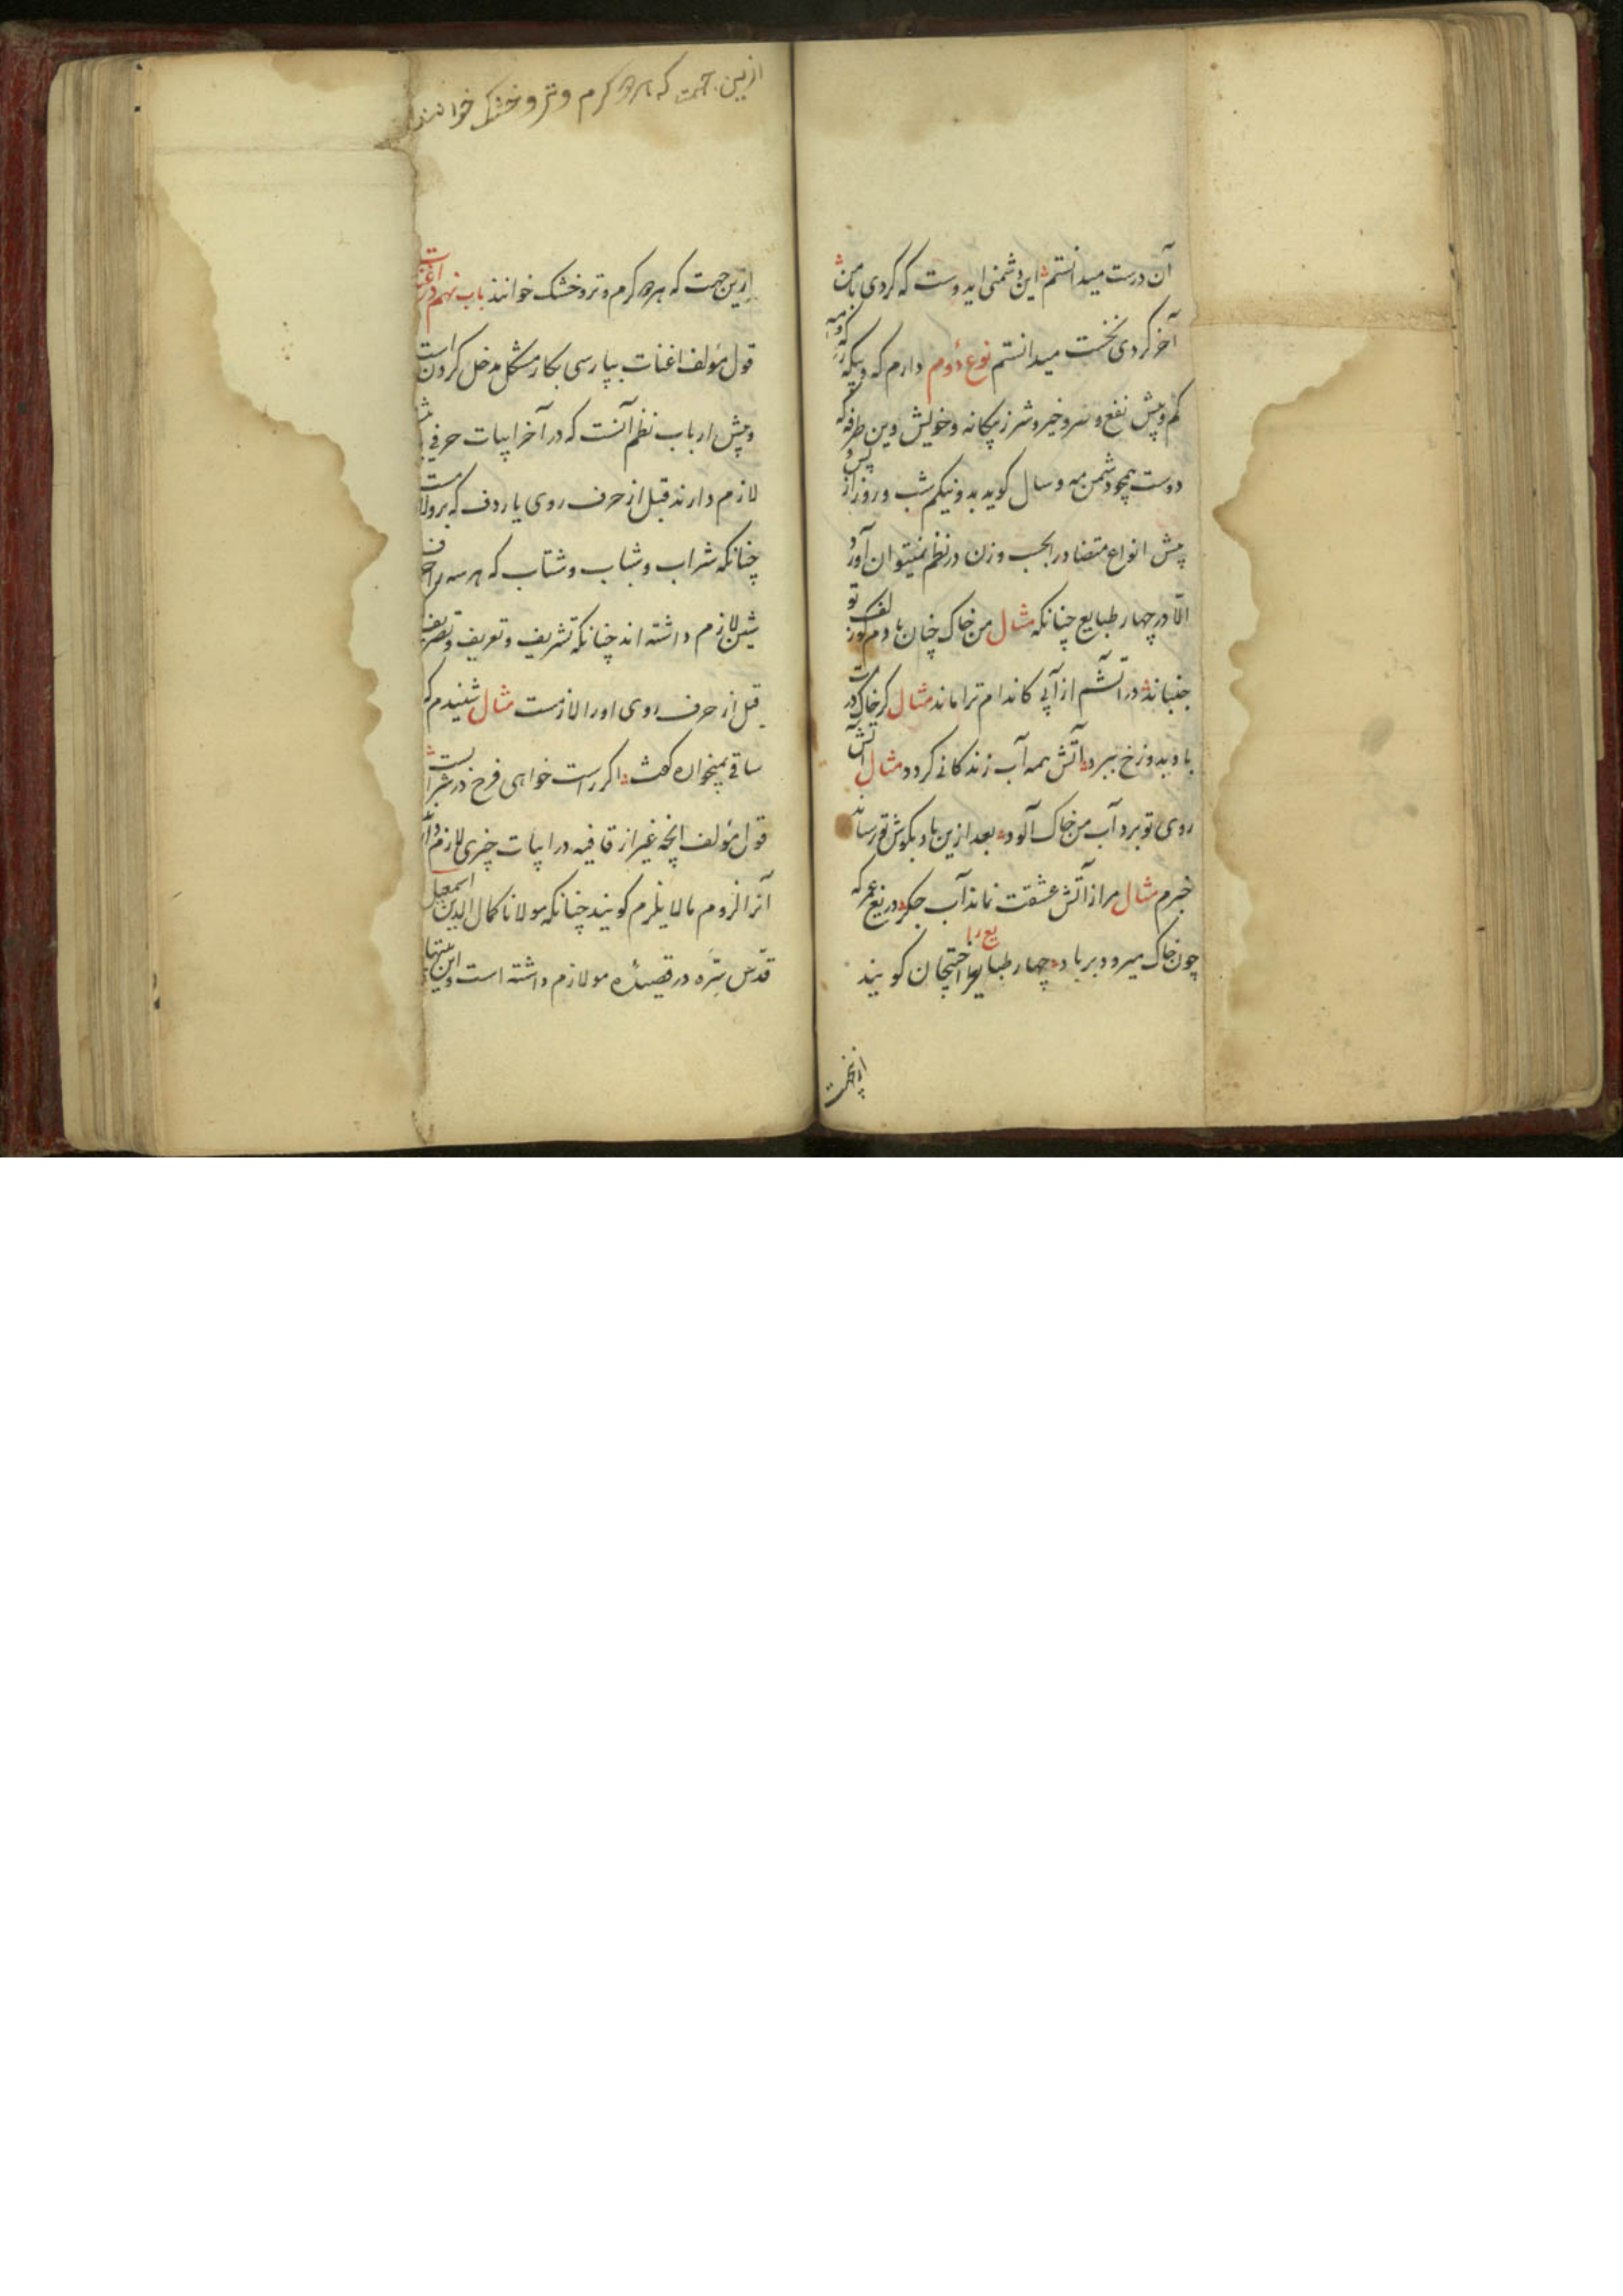 آن درست میدانستم این دشمنی ایدوست که کردی با من
آخر کردی نخست میدانستم نوع دوم دارم که و بیکه
کم و بیش نفع و ضر و خیر و شر ز بیکانه و خویش وین طرفه که
دوست همچو دشمن مه و سال کوید بد و نیکم شب و روز از پس و
پیش انواع متضاد را بحسب وزن در نظم نمیتوان آورد
الا در چهار طبایع چنانکه مثال من خاک چنان بادم کو زلف تو
جنباند در آتشم از آبی کاندام ترا ماند مثال کر خاک درت
باد بدوزخ ببرد آتش همه آب زندکانی کردد مثال آتش
روی تو برد آب من خاک آلود بعد ازین باد بکوش تو رساند
خبرم مثال مرا ز آتش عشقت نماند آب جکر دریغ عمر که
چون خاک میرود بر باد چهار طبایع را احتجان کویند
ازینجهت
ازین جهت که هر دو کرم و تر و خشک خوانند
ازین جهت که هر دو کرم و تر و خشک خوانند باب نهم در اغنات
قول مؤلف اغنات بپارسی بکار مشکل مدخل کردن است
و پیش ارباب نظم آنست که در آخر ابیات حرفی
لازم دارند قبل از حرف روی یا ردف که برو لازمست
چنانکه شراب و شباب و شتاب که هر سه را حرف
شین لازم داشته اند چنانکه تشریف و تعریف و تصریف
قبل از حرف روی او را لازمست مثال شنیدم که
ساقی بمیخواره کفت اکر راست خواهی فرخ در شرابست
قول مؤلف آنچه غیر از قافیه در ابیات چیزی لازم دارند
آنرا لزوم مالایلزم کویند چنانکه مولانا کمال الدین اسمعیل
قدس سره در قصیده مو لازم داشته است و این بیتها